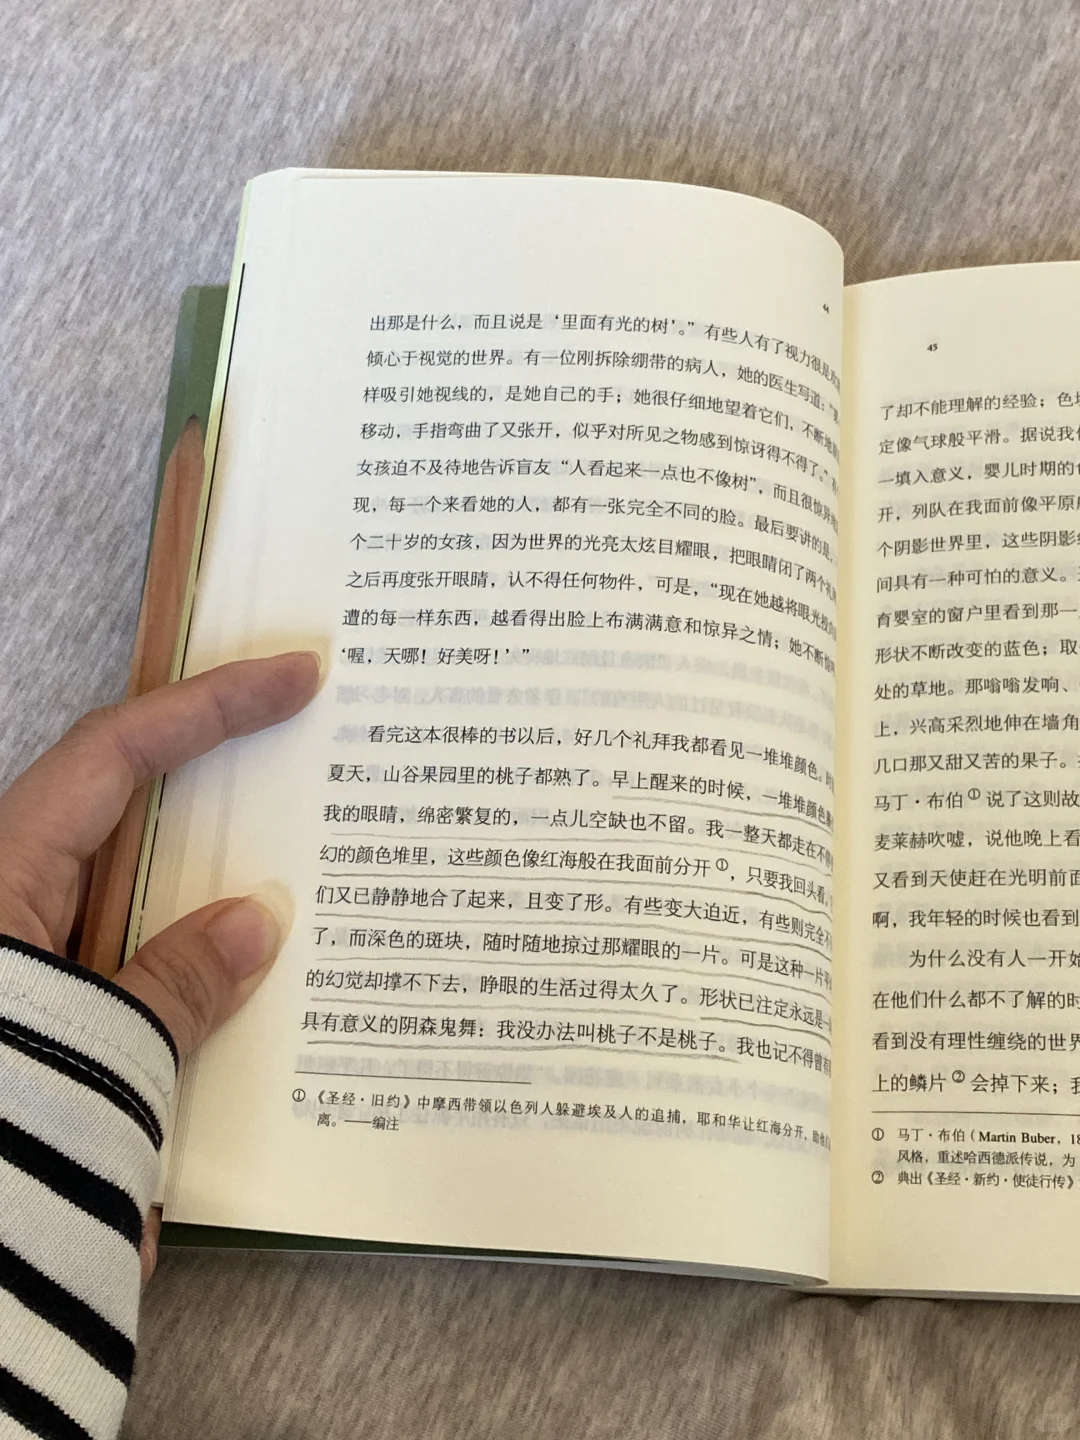 44
出那是什么，而且说是‘里面有光的树’。”有些人有了视力很是
倾心于视觉的世界。有一位刚拆除绷带的病人，她的医生写道：“
样吸引她视线的，是她自己的手；她很仔细地望着它们，不断地
移动，手指弯曲了又张开，似乎对所见之物感到惊讶得不得了。”
女孩迫不及待地告诉盲友“人看起来一点也不像树”，而且很惊异地
现，每一个来看她的人，都有一张完全不同的脸。最后要讲的是，
个二十岁的女孩，因为世界的光亮太炫目耀眼，把眼睛闭了两个礼
之后再度张开眼睛，认不得任何物件，可是，“现在她越将眼光投向
遭的每一样东西，越看得出脸上布满满意和惊异之情；她不断
‘喔，天哪！好美呀！’”
看完这本很棒的书以后，好几个礼拜我都看见一堆堆颜色。时
夏天，山谷果园里的桃子都熟了。早上醒来的时候，一堆堆颜色
我的眼睛，绵密繁复的，一点儿空缺也不留。我一整天都走在不
幻的颜色堆里，这些颜色像红海般在我面前分开①，只要我回头看，
们又已静静地合了起来，且变了形。有些变大迫近，有些则完全
了，而深色的斑块，随时随地掠过那耀眼的一片。可是这种一片
的幻觉却撑不下去，睁眼的生活过得太久了。形状已注定永远是一
具有意义的阴森鬼舞：我没办法叫桃子不是桃子。我也记不得曾
① 《圣经·旧约》中摩西带领以色列人躲避埃及人的追捕，耶和华让红海分开，助他
离。——编注
45
了却不能理解的经验；色
定像气球般平滑。据说我
一填入意义，婴儿时期的
开，列队在我面前像平原
个阴影世界里，这些阴影
间具有一种可怕的意义。
育婴室的窗户里看到那一
形状不断改变的蓝色；取
处的草地。那嗡嗡发响、
上，兴高采烈地伸在墙角
几口那又甜又苦的果子。
马丁·布伯①说了这则故
麦莱赫吹嘘，说他晚上看
又看到天使赶在光明前面
啊，我年轻的时候也看到
为什么没有人一开始
在他们什么都不了解的时
看到没有理性缠绕的世界
上的鳞片②会掉下来；我
① 马丁·布伯（Martin Buber，18
风格，重述哈西德派传说，为
② 典出《圣经·新约·使徒行传》